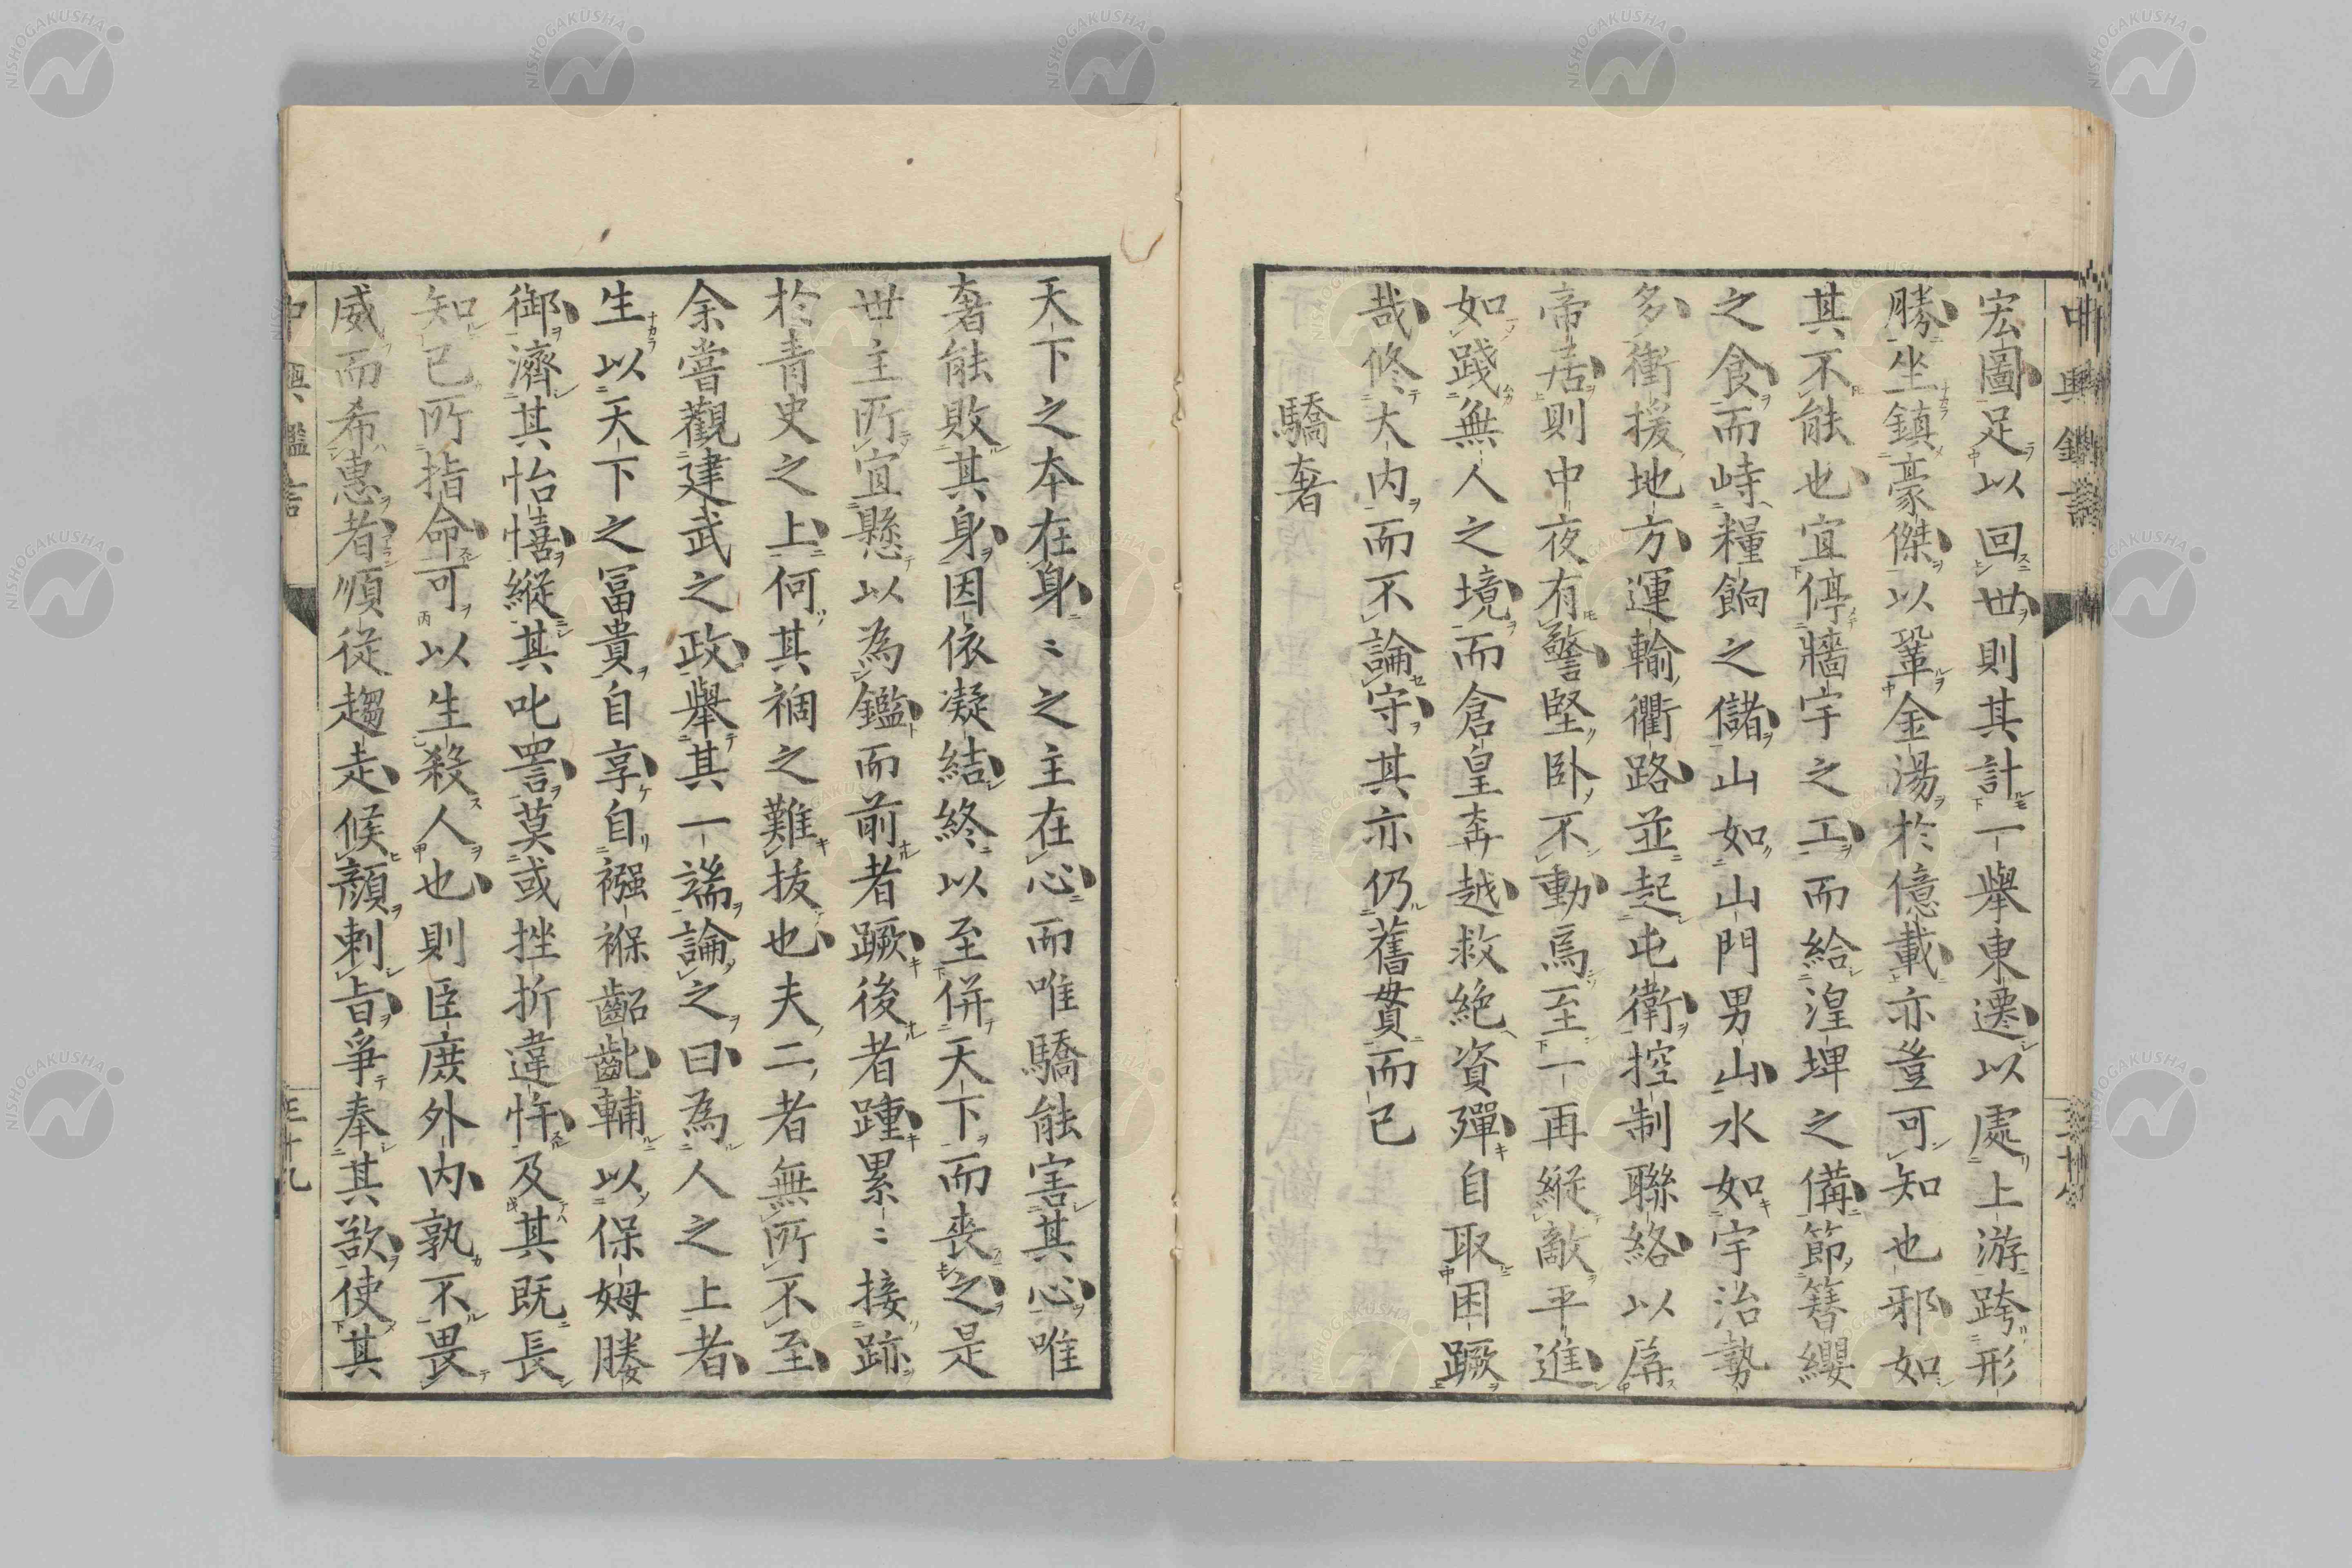 宏圖足以回世則其計一擧東遷以處上游跨形
勝坐鎮豪傑以鞏金湯於億載亦豈可知也邪如
其不能也宜停牆宇之工而給湟埤之備節簪纓
之食而峙糧餉之儲山如山門男山水如宇治勢
多衝援地方運輸衢路並起屯衛控制聯絡以屏
帝居則中夜有警堅卧不動焉至一再縦敵平進
如踐無人之境而倉皇奔越救絶資殫自取困蹶
哉修大内而不論守其亦仍舊貫而已
驕奢
天下之本在身〻之主在心而唯驕能害其心唯
奢能敗其身因依凝結終以至併天下而喪之是
世主所宜懸以為鑑而前者蹶後者踵累〻接跡
於青史之上何其涸之難抜也夫二者無所不至
余嘗觀建武之政擧其一端論之曰為人之上者
生以天下之冨貴自享自襁褓齠齔輔以保姆媵
御濟其怡僖縦其叱詈莫或挫折違忤及其既長
知已所指命可以生殺人也則臣庶外内孰不畏
威而希惠者順従趨走候顔刺旨爭奉其欲使其
中興鑑言
三十九